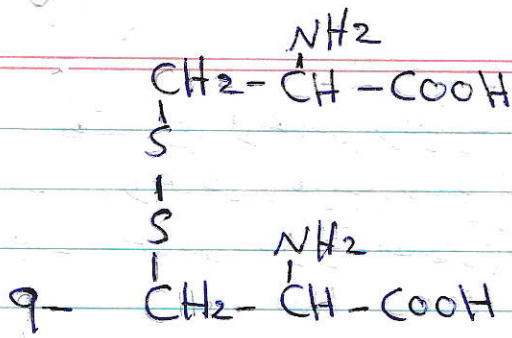 NH2
CH2-CH-COOH
S
S
NH2
9- CH2-CH-COOH